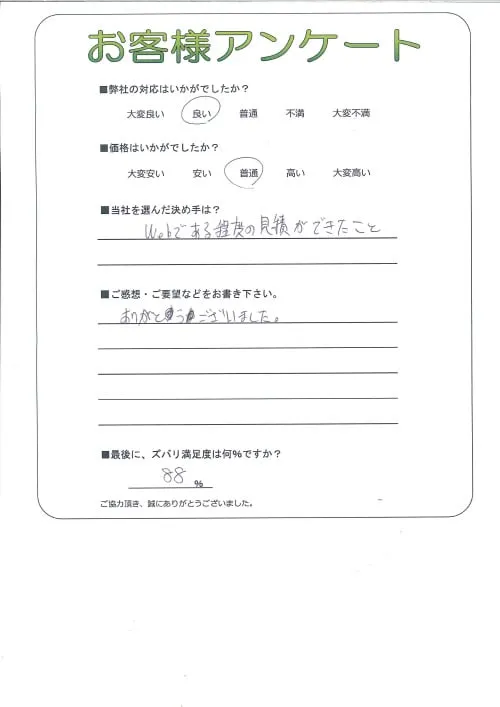 お客様アンケート
■弊社の対応はいかがでしたか？
大変良い 良い 普通 不満 大変不満
■価格はいかがでしたか？
大変安い 安い 普通 高い 大変高い
■当社を選んだ決め手は？
Webである程度の見積ができたこと
■ご感想・ご要望などをお書き下さい。
ありがとうございました。
■最後に、ズバリ満足度は何%ですか？
88 %
ご協力頂き、誠にありがとうございました。